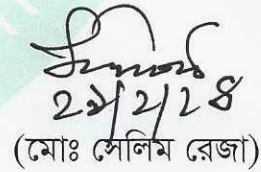 ২৯/২/২৪
(মোঃ সেলিম রেজা)